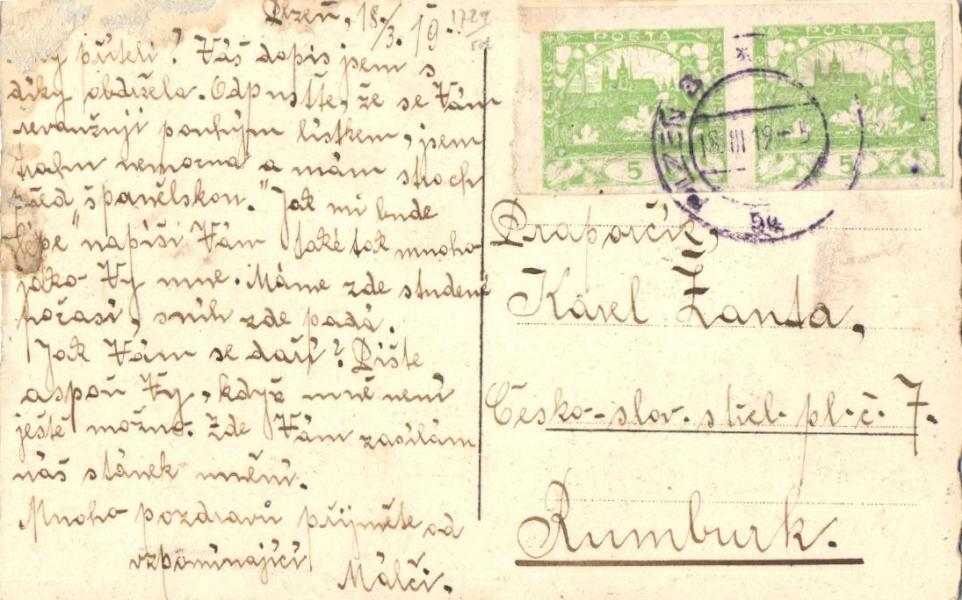 Plzeň, 18/3. 19.
příteli! Váš dopis jsem s
díky obdržela. Odpusťte, že se Vám
revanžuji pouhým lístkem, jsem
trochu nemocna a mám strach
před "španělskou." Jak mi bude
lépe napíši Vám také tak mnoho
jako Vy mne. Máme zde studené
počasí, sníh zde padá.
Jak Vám se daří? Pište
aspoň Vy, když mně není
ještě možno. Zde Vám zasílám
náš stánek umění.
Mnoho pozdravů přijměte od
vzpomínající
Málči.
POŠTA
ČESKO
SLOVENSKÁ
5
POŠTA
5
PLZEŇ 3
18 III 19 - 5
5a
Praporčík,
Karel Žanta,
Česko-slov. střel. pl. č. 7.
Rumburk.